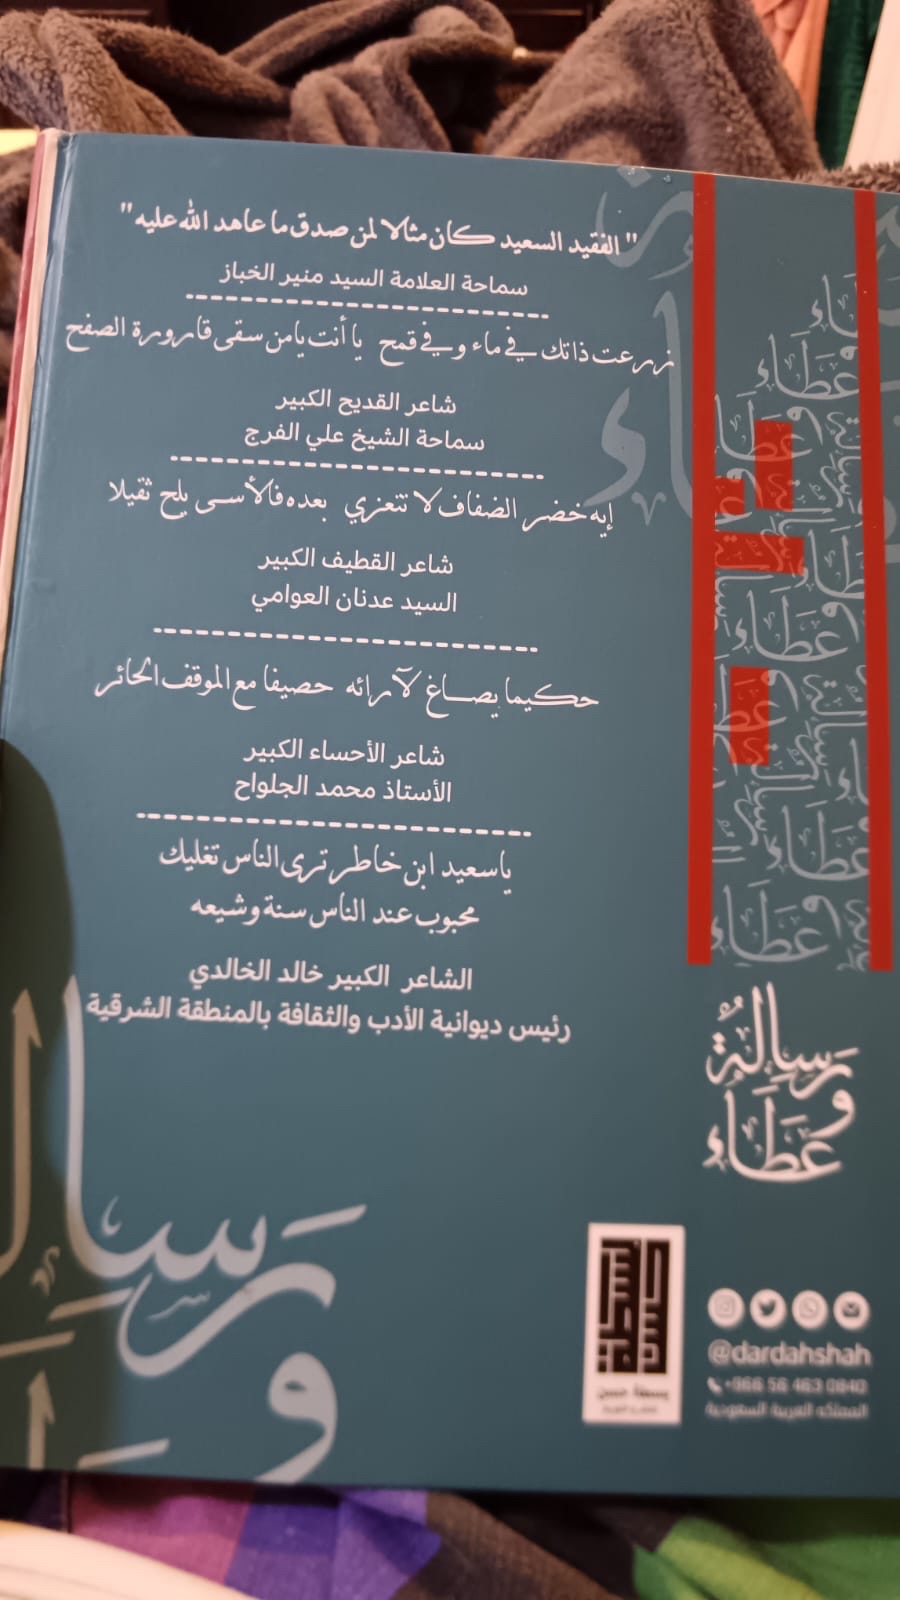 "الفقيد السعيد كان مثالا لمن صدق ما عاهد الله عليه"
سماحة العلامة السيد منير الخباز
زرعت ذاتك في ماء وفي قمح يا أنت يا من سقى قارورة الصفح
شاعر القديح الكبير
سماحة الشيخ علي الفرج
إيه خضر الضفاف لا تتعزي بعده فالأسى يلح ثقيلا
شاعر القطيف الكبير
السيد عدنان العوامي
حكيما يصاغ لآرائه حصيفا مع الموقف الحائر
شاعر الأحساء الكبير
الأستاذ محمد الجلواح
يا سعيد ابن خاطر ترى الناس تغليك
محبوب عند الناس سنة وشيعه
الشاعر الكبير خالد الخالدي
رئيس ديوانية الأدب والثقافة بالمنطقة الشرقية
رسالة
و
عطاء
@dardahshah
+966 56 463 0840
المملكة العربية السعودية